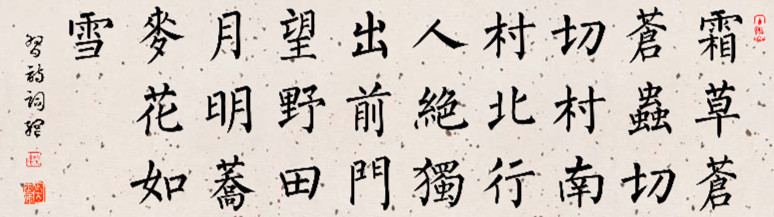 霜草蒼
蒼蟲切
切村南
村北行
人絶獨
出前門
望野田
月明蕎
麥花如
雪
詩詞